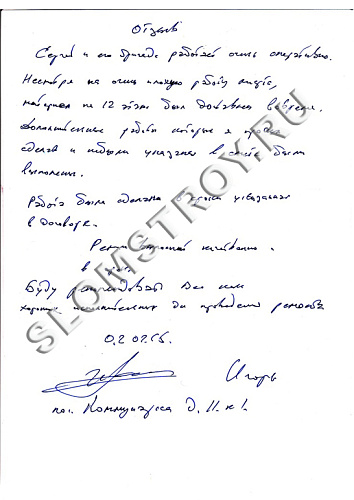 Отзыв
Сергей и его бригада работает очень оперативно.
Несмотря на очень плохую работу лифта,
материал на 12 этаж был доставлен вовремя.
Дополнительные работы которые я просил
сделать и небыли указаны в смете были
выполнены.
Работа была сделана в сроки указанные
в договоре.
Ремонт качественно
в срок
Буду рекомендовать Вас как
хороших исполнителей для проведения ремонта
02.07.15.
Игорь
Коммунарка д. 11. к 1.
SLOMSTROY.RU